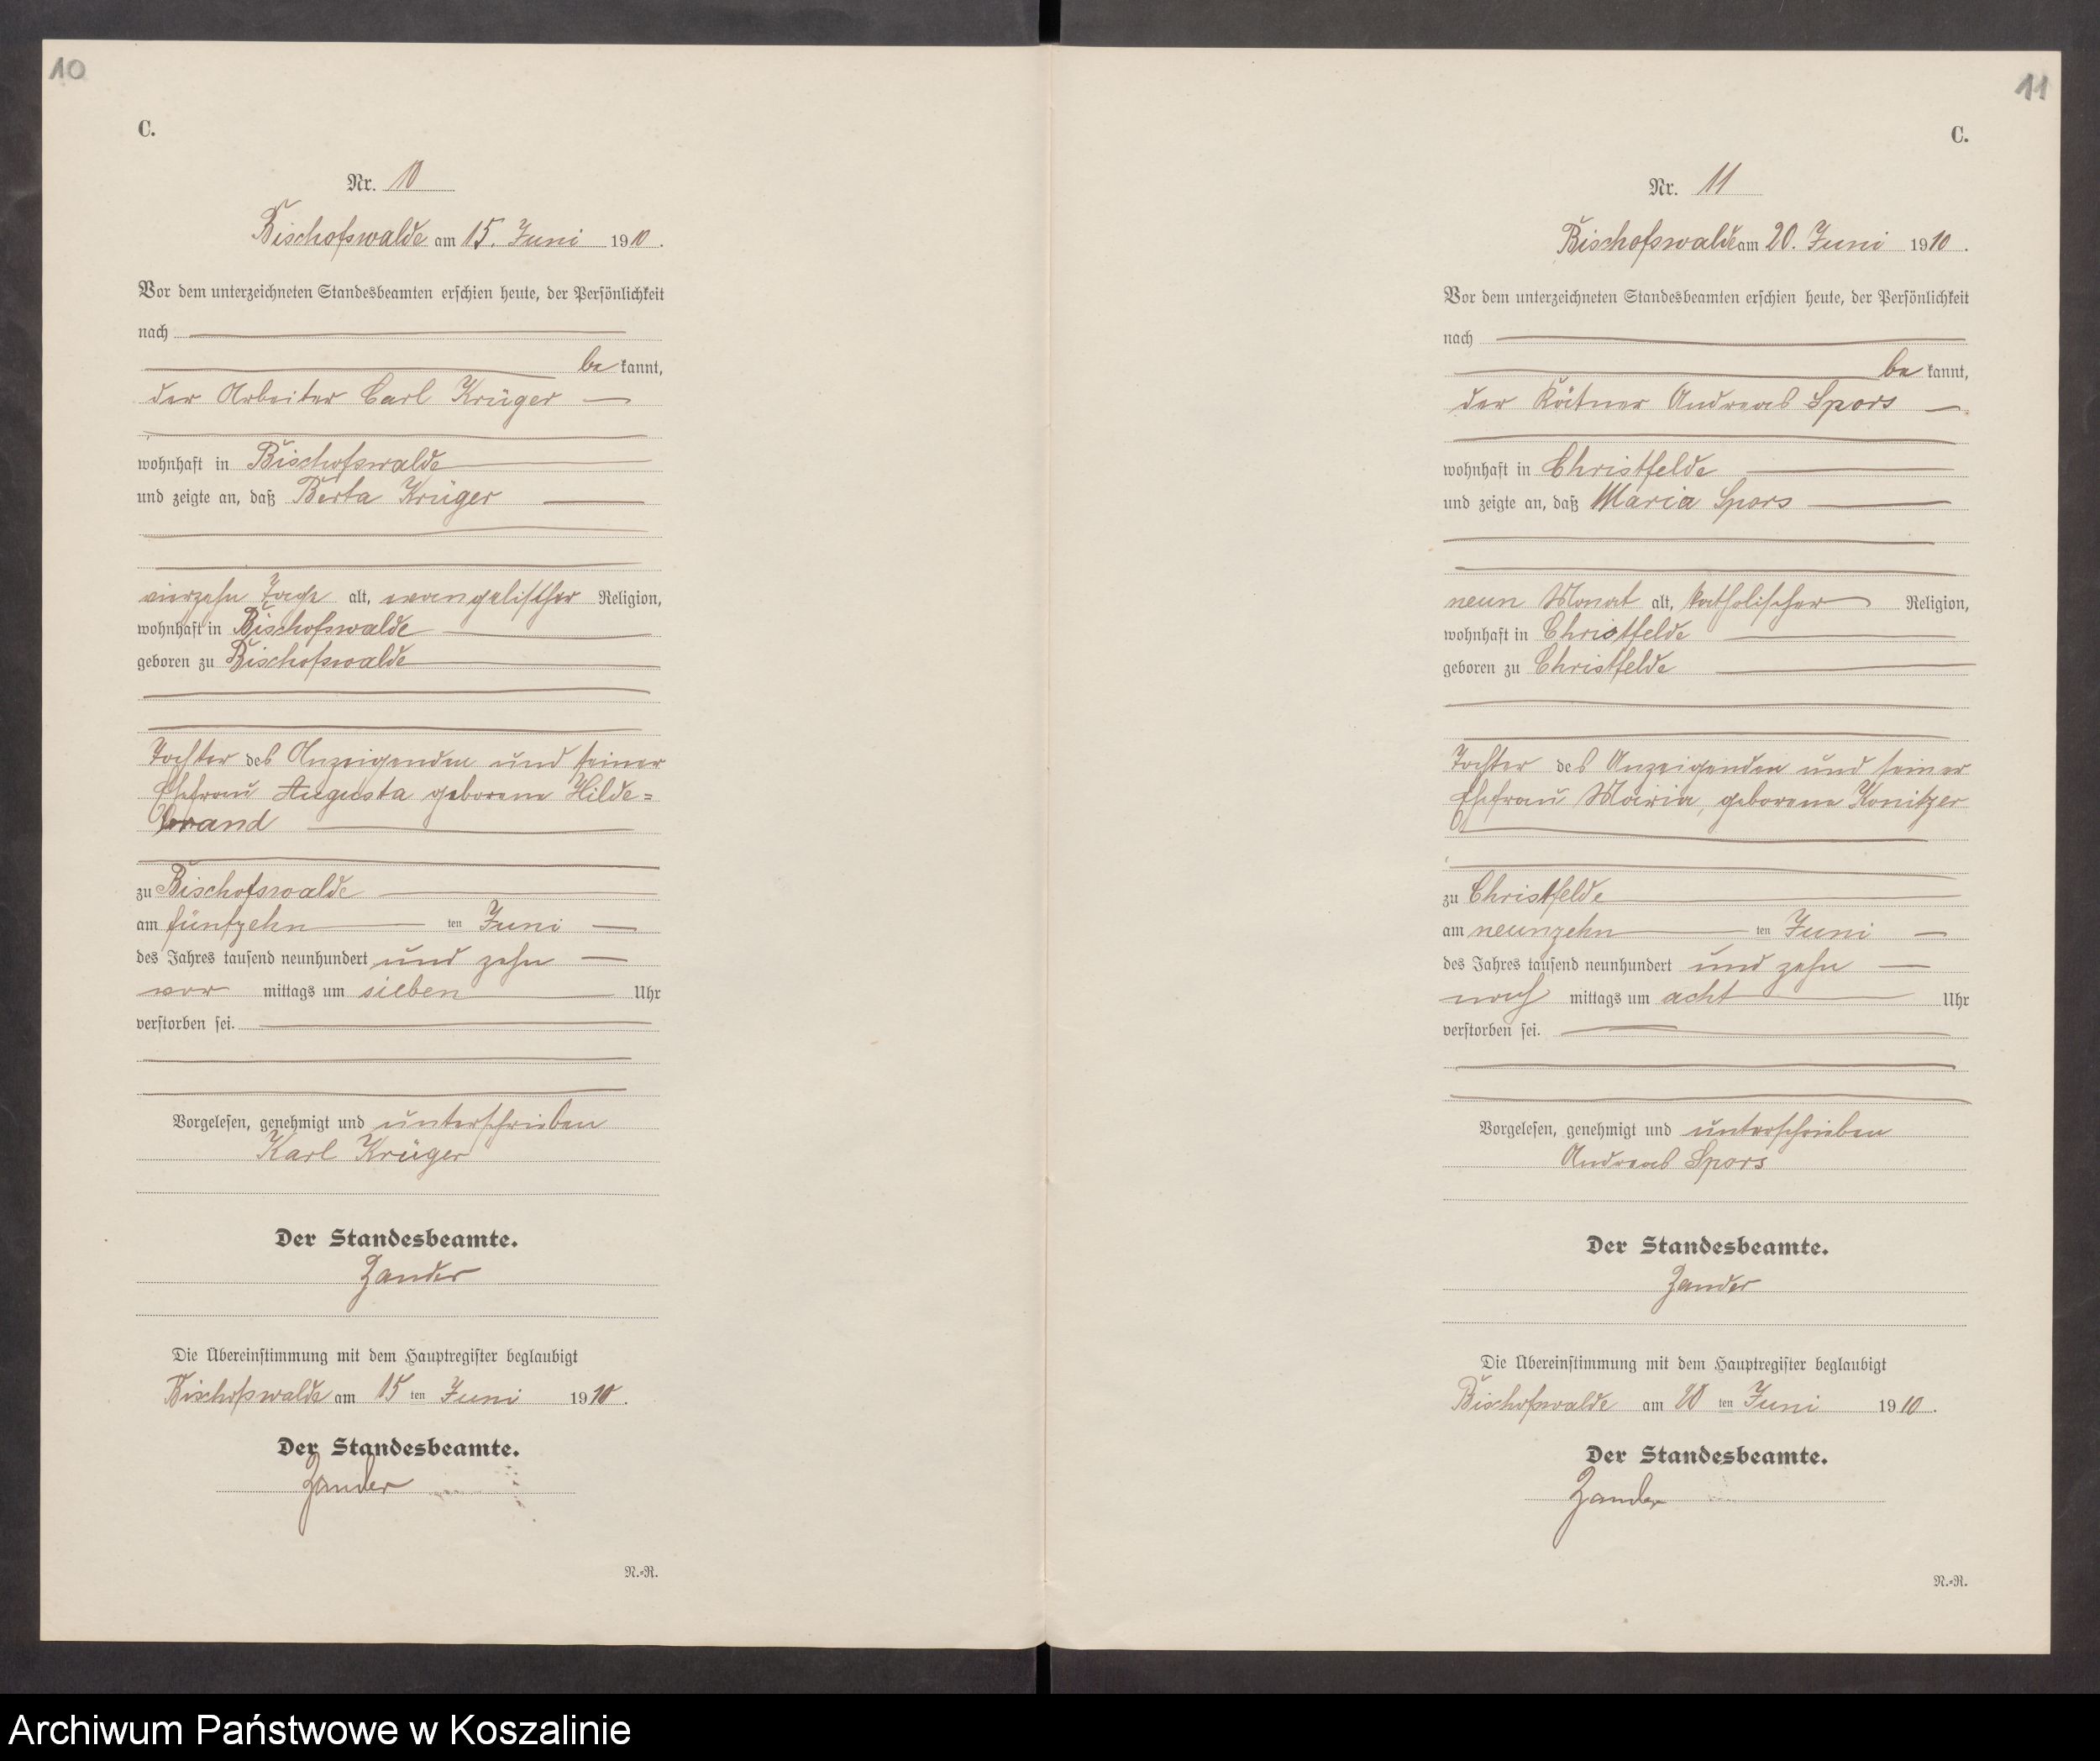 10
C.
Nr. 10
Bischofswalde am 15. Juni 1910.
Vor dem unterzeichneten Standesbeamten erschien heute, der Persönlichkeit
nach
be kannt,
der Arbeiter Carl Krüger
wohnhaft in Bischofswalde
und zeigte an, daß Berta Krüger
vierzehn Tage alt, evangelischer Religion,
wohnhaft in Bischofswalde
geboren zu Bischofswalde
Tochter des Anzeigenden und seiner
Ehefrau Augusta geborene Hilde=
brand
zu Bischofswalde
am fünfzehn ten Juni
des Jahres tausend neunhundert und zehn
vor mittags um sieben Uhr
verstorben sei.
Vorgelesen, genehmigt und unterschrieben
Karl Krüger
Der Standesbeamte.
Zander
Die Übereinstimmung mit dem Hauptregister beglaubigt
Bischofswalde am 15 ten Juni 1910.
Der Standesbeamte.
Zander
N.=R.
11
C.
Nr. 11
Bischofswalde am 20. Juni 1910.
Vor dem unterzeichneten Standesbeamten erschien heute, der Persönlichkeit
nach
be kannt,
der Kätner Andreas Spors
wohnhaft in Christfelde
und zeigte an, daß Maria Spors
neun Monat alt, katholischer Religion,
wohnhaft in Christfelde
geboren zu Christfelde
Tochter des Anzeigenden und seiner
Ehefrau Maria, geborene Konitzer
zu Christfelde
am neunzehn ten Juni
des Jahres tausend neunhundert und zehn
nach mittags um acht Uhr
verstorben sei.
Vorgelesen, genehmigt und unterschrieben
Andreas Spors
Der Standesbeamte.
Zander
Die Übereinstimmung mit dem Hauptregister beglaubigt
Bischofswalde am 20 ten Juni 1910.
Der Standesbeamte.
Zander
N.=R.
Archiwum Państwowe w Koszalinie